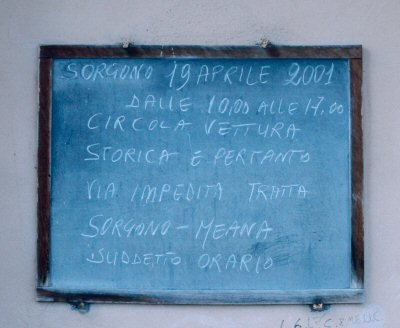 SORGONO 19 APRILE 2001
DALLE 10,00 ALLE 17,00
CIRCOLA VETTURA
STORICA E PERTANTO
VIA IMPEDITA TRATTA
SORGONO-MEANA
SUDDETTO ORARIO